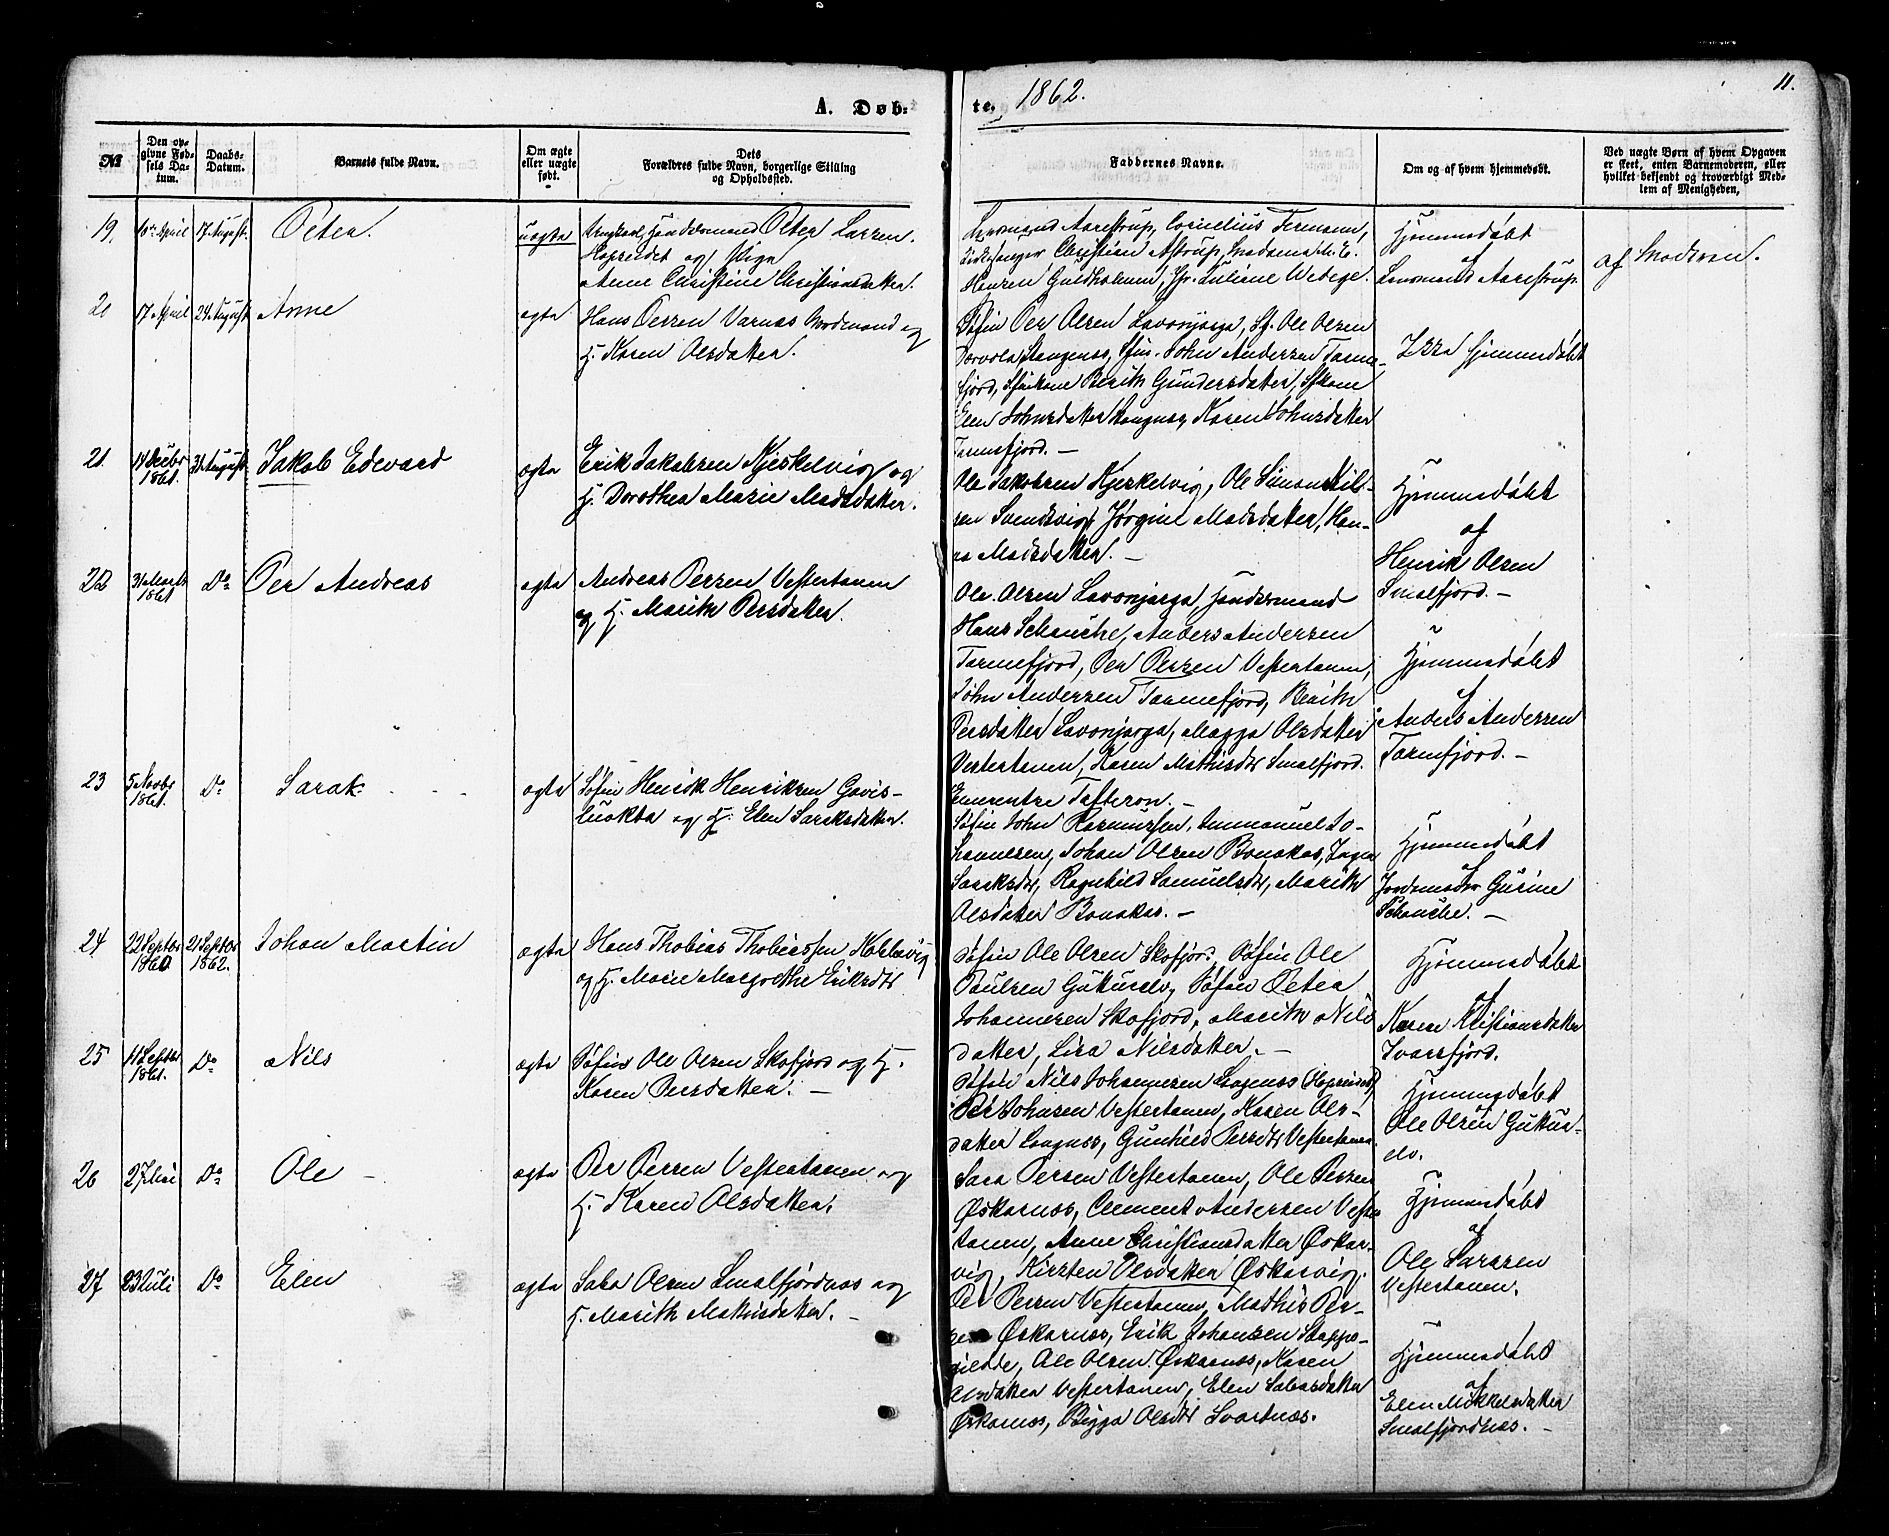 A. Døb-
te, 1862.
11.
№
Den op-
givne Fød-
sels Da-
tum.
Daabs-
Datum.
Barnets fulde Navn.
Om ægte
eller uægte
født.
Dets
Forældres fulde Navn, borgerlige Stilling
og Opholdssted.
Faddernes Navne.
Om og af hvem hjemmedøbt.
Ved uægte Børn af hvem Opgaven
er skeet, enten Barnemoderen, eller
hvilket bekjendt og troværdigt Med-
lem af Menigheden,
19. 10de April 17 August. Peter. uægte
Ungkarl, Handelsmand Peter Larsen.
Hopseidet og Pige
Anne Christine Christiansdatter.
Lensmand Aarestrup, Cornelius Fermann,
Kirkesanger Christian Astrup, Madame M. E.
Hansen Guldholmen, Jfr. Juliane Wedege.
Hjemmedøbt
af
Lensmand Aarestrup.
af Moderen.
20 17 April 24 August Anne ægte
Hans Persen Varnæs Nordmand og
H. Karen Olsdatter.
Søfin Per Olsen Lavonjarga, Sf. Ole Olsen
Langenss, Sfin. John Andersen Tarme-
fjord, Sfinkone Berith Gundersdatter, Sfkone
Elen Johnsdatter Langnes, Karen Johnsdatter
Tarmefjord. —
Ikke hjemmedøbt
21. 14 Decbr 1861. 31 August. Jakob Edvard ægte
Erik Jakobsen Kjerkelvig og
H. Dorothea Marie Madsdatter.
Ole Jakobsen Kjerkelvig, Ole Simon Nil-
sen Svendsvig, Jørgine Madsdatter, Han-
na Madsdatter. —
Hjemmedøbt
af
Henrik Olsen
Smalfjord. —
22 31 Marts 1861 Do Per Andreas ægte
Andreas Persen Vestertanen
og H. Marith Persdatter.
Ole Olsen Lavonjarga, Handelsmand
Hans Schanche, Anders Andersen
Tarmefjord, Per Persen Vestertanen,
John Andersen Tarmefjord, Berith
Persdatter Lavonjarga, Magga Olsdatter
Vestertanen, Karen Mathisdtr Smalfjord.
Hjemmedøbt
af
Anders Andersen
Tarmefjord. —
23 5 Novbr 1861. Do Sarak ægte
Søfin Henrik Henriksen Gavis-
luokta og H. Elen Saraksdatter.
Søfin John Rasmussen, Immanuel Jo-
hannesen, Johan Olsen Bonakas, Inga
Saraksdtr, Ragnhild Samuelsdtr, Marith
Olsdatter Bonakas. —
Hjemmedøbt
af
Jordemoder Gurine
Schanche. —
24 22 Septbr 1860 21 Septbr 1862. Johan Martin ægte
Hans Thobias Thobiassen
og H. Marie Margrethe Eriksdtr
Søfin Ole Olsen Skofjord, Søfin Ole
Paulsen Gukuselv, Søfin Peter
Johannesen Skofjord, Marith Nils
datter, Lisa Nilsdatter. —
Hjemmedøbt
af
Karen Kristiansdatter
Ivarsfjord.
25 11 Septbr 1861. Do Nils ægte
Søfin Ole Olsen Skofjord og H.
Karen Persdatter. —
Søfin Nils Johannesen Langenss (Hopseidet)
Per Johnsen Vestertanen, Karen Ols-
datter Langness, Gunhild Persdtr Vestertanen.
Hjemmedøbt
Ole Olsen Gukus-
elv.
26 27 Do Ole — ægte
Per Persen Vestertanen og
H. Karen Olsdatter.
Sara Persen Vestertanen, Ole Persen
Øskarnæs, Clement Andersen Vester
tanen, Anne Christiansdatter Øskar-
vig, Kirsten Olsdatter Øskarvig.
Hjemmedøbt
af
Ole Larssen
Vestertanen.
27 23 Juli Do Elen ægte
Saba Olsen Smalfjordnæs og
H. Marith Mathisdatter. —
Per Persen Vestertanen, Mathis Per-
sen Øskarnæs, Erik Johansen Stappo-
giedde, Ole Olsen Øskarnæs, Karen
Olsdatter Vestertanen, Elen Sabasdatter
Øskarnæs, Bigga Olsdtr Svartnæs.
Hjemmedøbt
af
Elen Mikkelsdatter
Smalfjordnæs. —